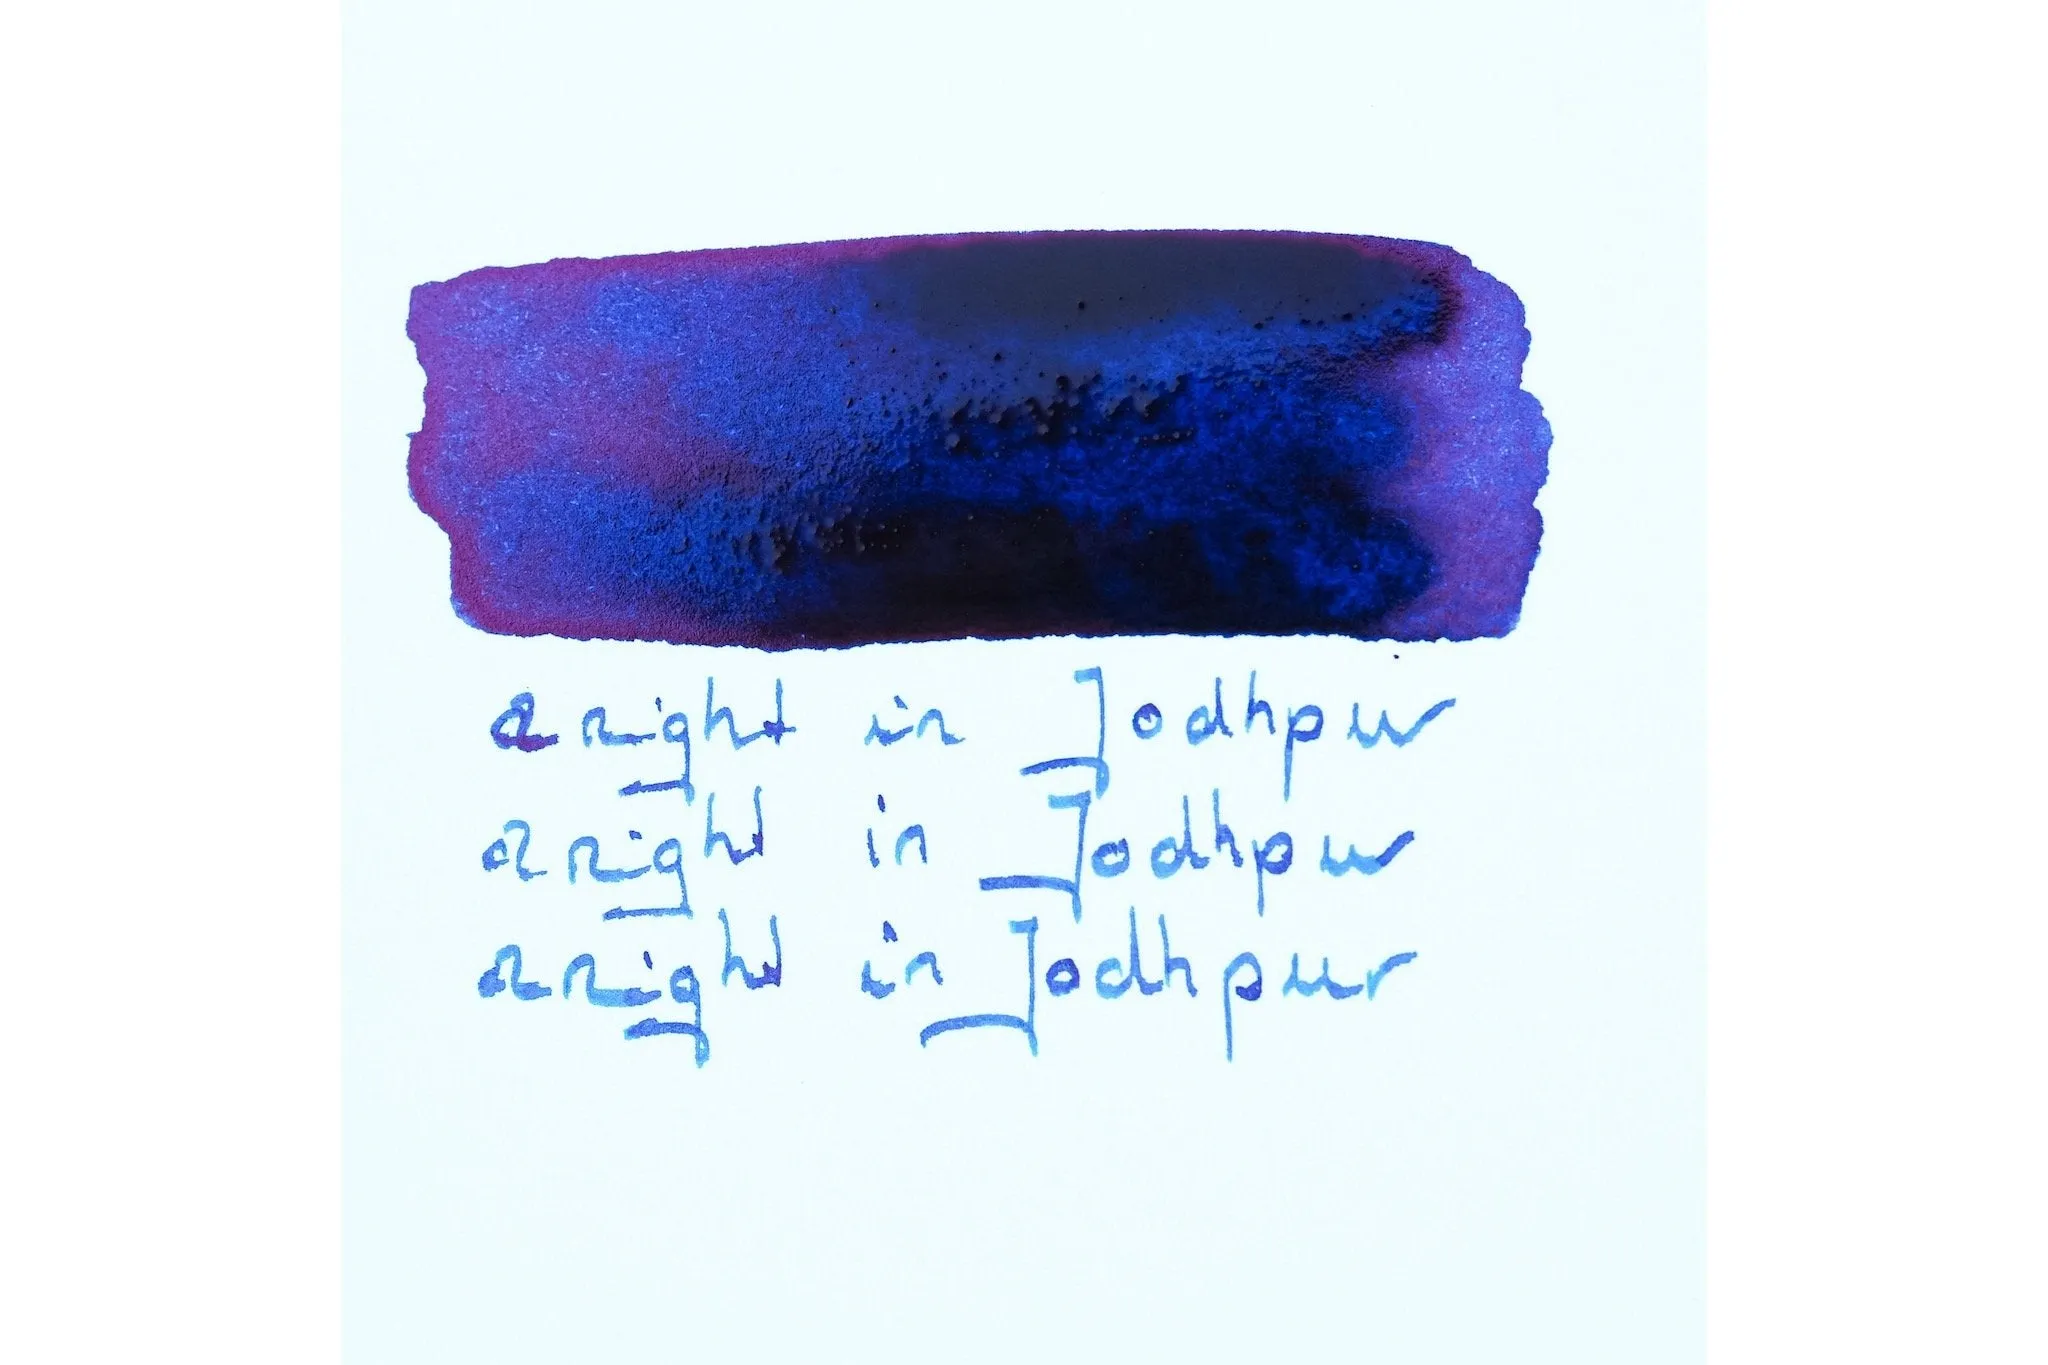 a night in Jodhpur
a night in Jodhpur
a night in Jodhpur